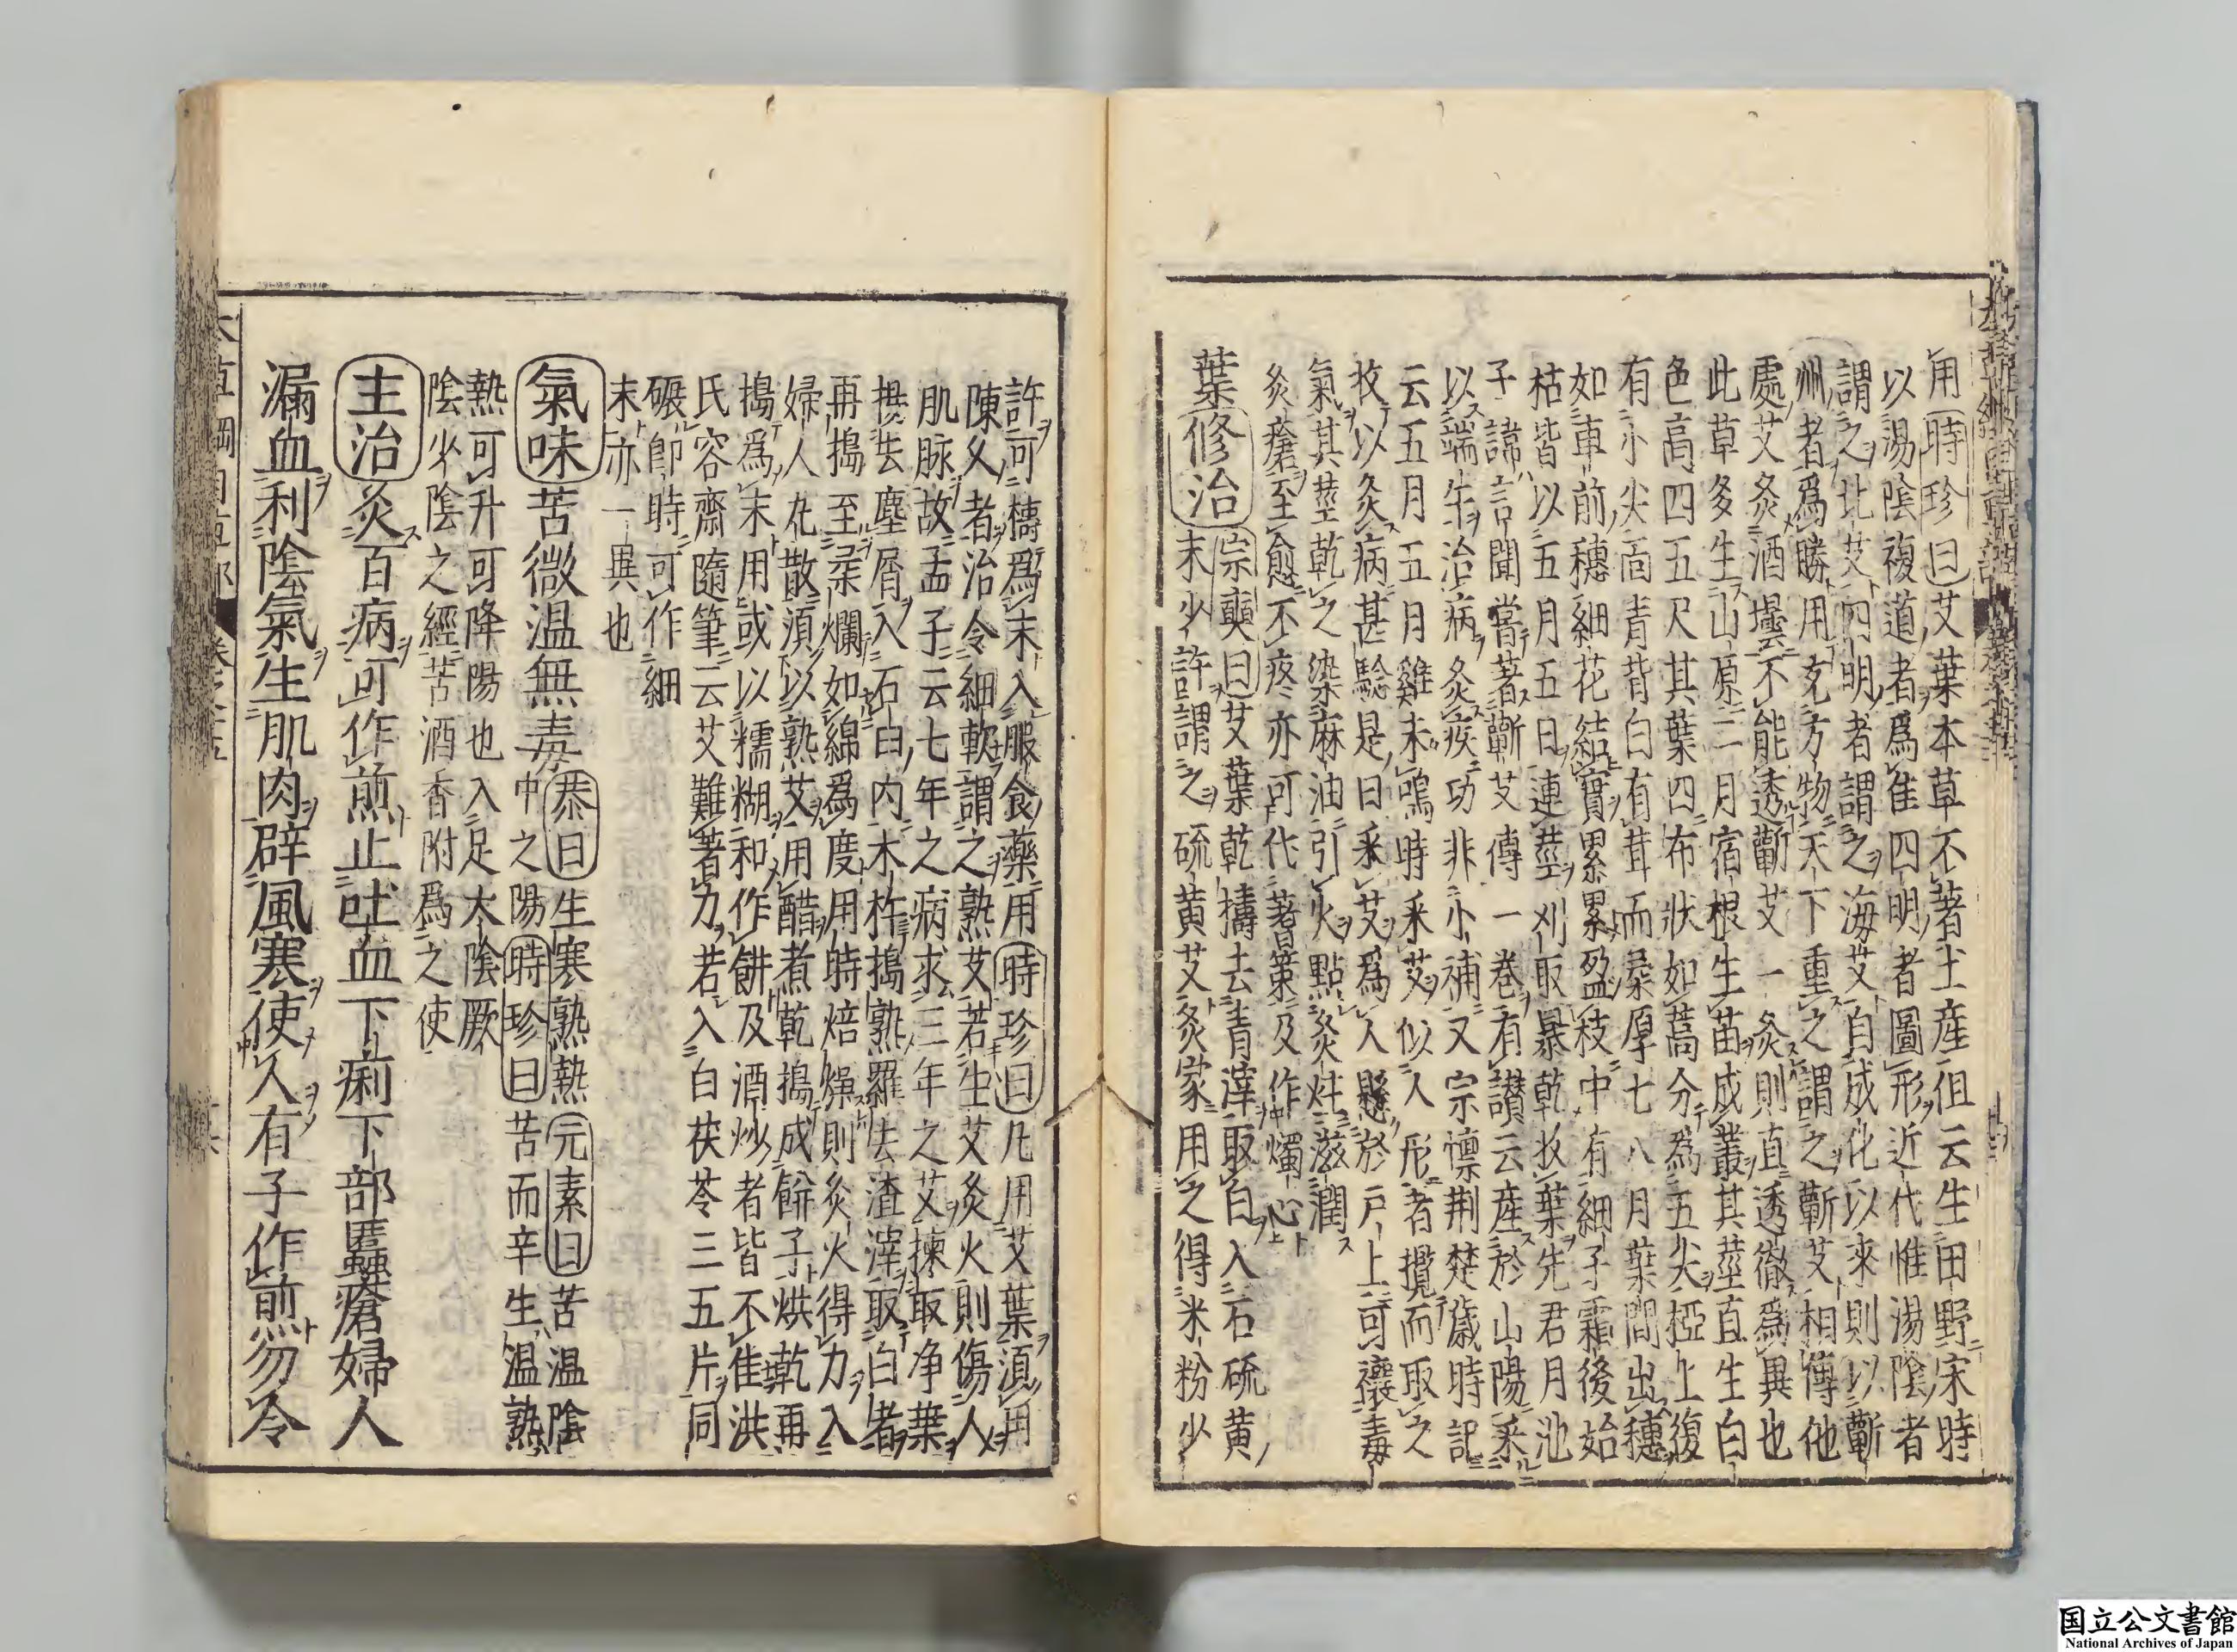 用時珍曰艾葉本草不著土産但云生田野宋時
以湯陰複道者爲佳四明者圖形近代惟湯陰者
謂之北艾四明者謂之海艾自成化以來則以蘄
州者爲勝用充方物天下重之謂之蘄艾相傳他
處艾灸酒壜不能透蘄艾一灸則直透徹爲異也
此草多生山原二月宿根生苗成叢其莖直生白
色高四五尺其葉四布狀如蒿分爲五尖椏上復
有小尖面青背白有茸而柔厚七八月葉間出穗
如車前穗細花結實累累盈枝中有細子霜後始
枯皆以五月五日連莖刈取暴乾收葉先君月池
子諱言聞嘗著蘄艾傳一卷有讃云産於山陽采
以端午治病灸疾功非小補又宗懍荆楚歳時記
云五月五月雞未鳴時采艾似人形者攬而取之
收以灸病甚驗是日采艾爲人懸於戸上可禳毒
氣其莖乾之染麻油引火點灸炷滋潤
灸瘡至愈不疼亦可代蓍策及作燭心
葉修治宗奭曰艾葉乾擣去青滓取白入石硫黄
末少許謂之硫黄艾灸家用之得米粉少
許可擣爲末入服食藥用時珍曰凡用艾葉湏用
陳久者治令細軟謂之熟艾若生艾灸火則傷人
肌脉故孟子云七年之病求三年之艾揀取净葉
揚去塵屑入石臼内木杵搗熟羅去渣滓取白者
再搗至柔爛如綿爲度用時焙燥則灸火得力入
婦人丸散湏以熟艾用醋煮乾搗成餅子烘乾再
搗爲末用或以糯糊和作餅及酒炒者皆不佳洪
氏容齋隨筆云艾難著力若入白茯苓三五片同
碾即時可作細
末亦一異也
氣味苦微温無毒恭曰生寒熟熱元素曰苦温陰
中之陽時珍曰苦而辛生温熟
熱可升可降陽也入足太陰厥
陰少陰之經苦酒香附爲之使
主治灸百病可作煎止吐血下痢下部䘌瘡婦人
漏血利陰氣生肌肉辟風寒使人有子作煎勿令
国立公文書館
National Archives of Japan